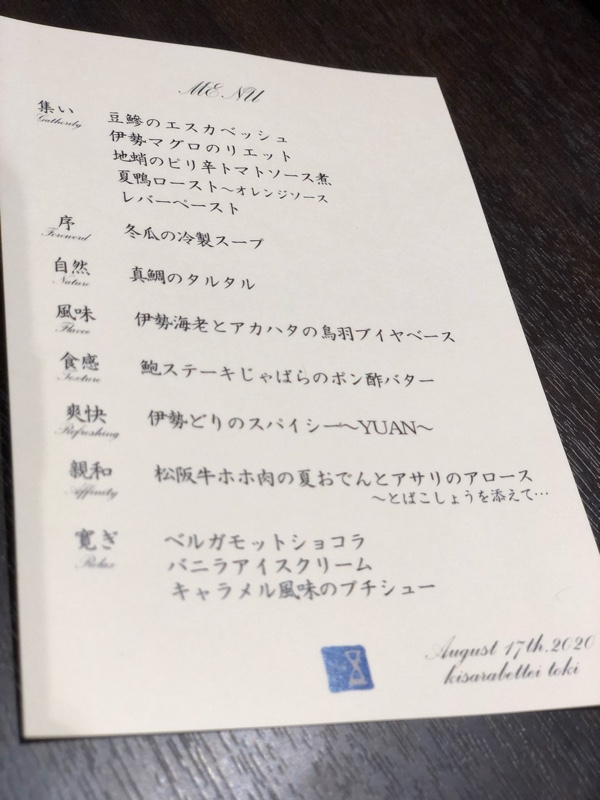 MENU
集い
Gathering
豆鯵のエスカベッシュ
伊勢マグロのリエット
地蛸のピリ辛トマトソース煮
夏鴨ロースト～オレンジソース
レバーペースト
序
Foreword
冬瓜の冷製スープ
自然
Nature
真鯛のタルタル
風味
Flavor
伊勢海老とアカハタの鳥羽ブイヤベース
食感
Texture
鮑ステーキじゃばらのポン酢バター
爽快
Refreshing
伊勢どりのスパイシー～YUAN～
親和
Affinity
松阪牛ホホ肉の夏おでんとアサリのアロース
～とばこしょうを添えて…
寛ぎ
Relax
ベルガモットショコラ
バニラアイスクリーム
キャラメル風味のプチシュー
August 17th.2020
kisarabettei toki